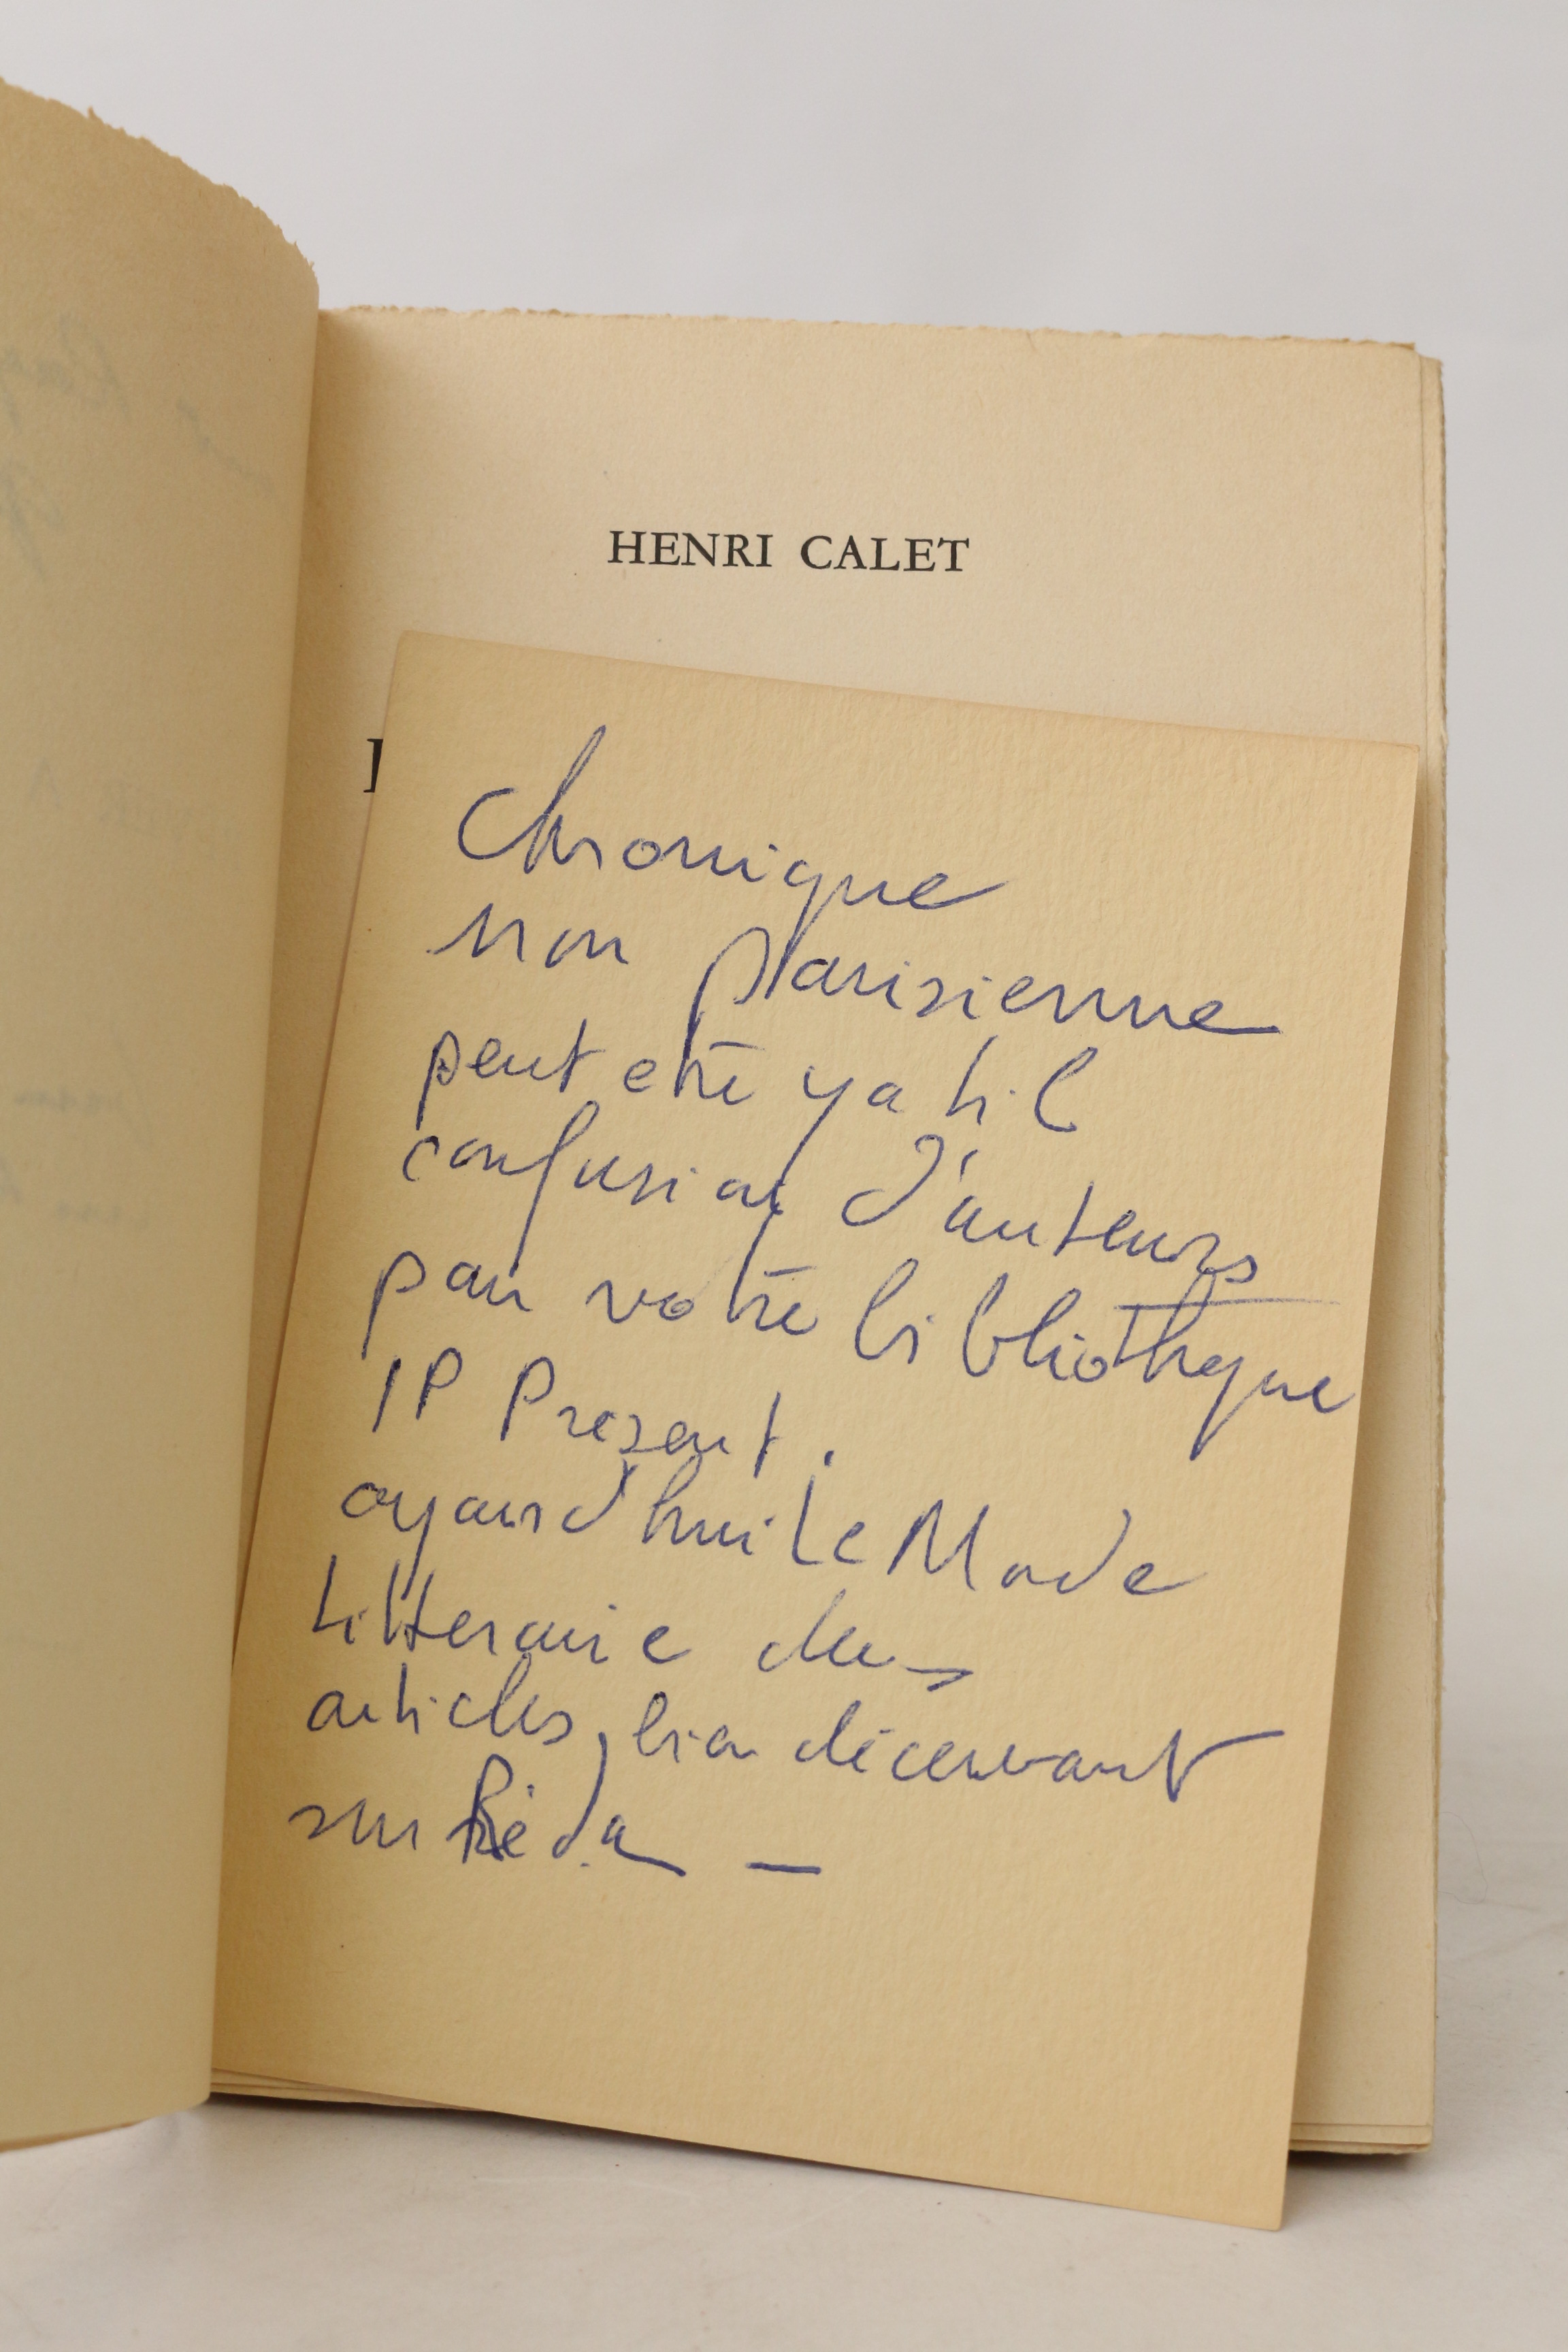 HENRI CALET
Chronique
non parisienne
peut etre y a t il
confusion d'auteurs
par votre bibliotheque
IP Present.
aujourd'hui Le Monde
Litteraire deux
articles, bien décevant
sur Réda —